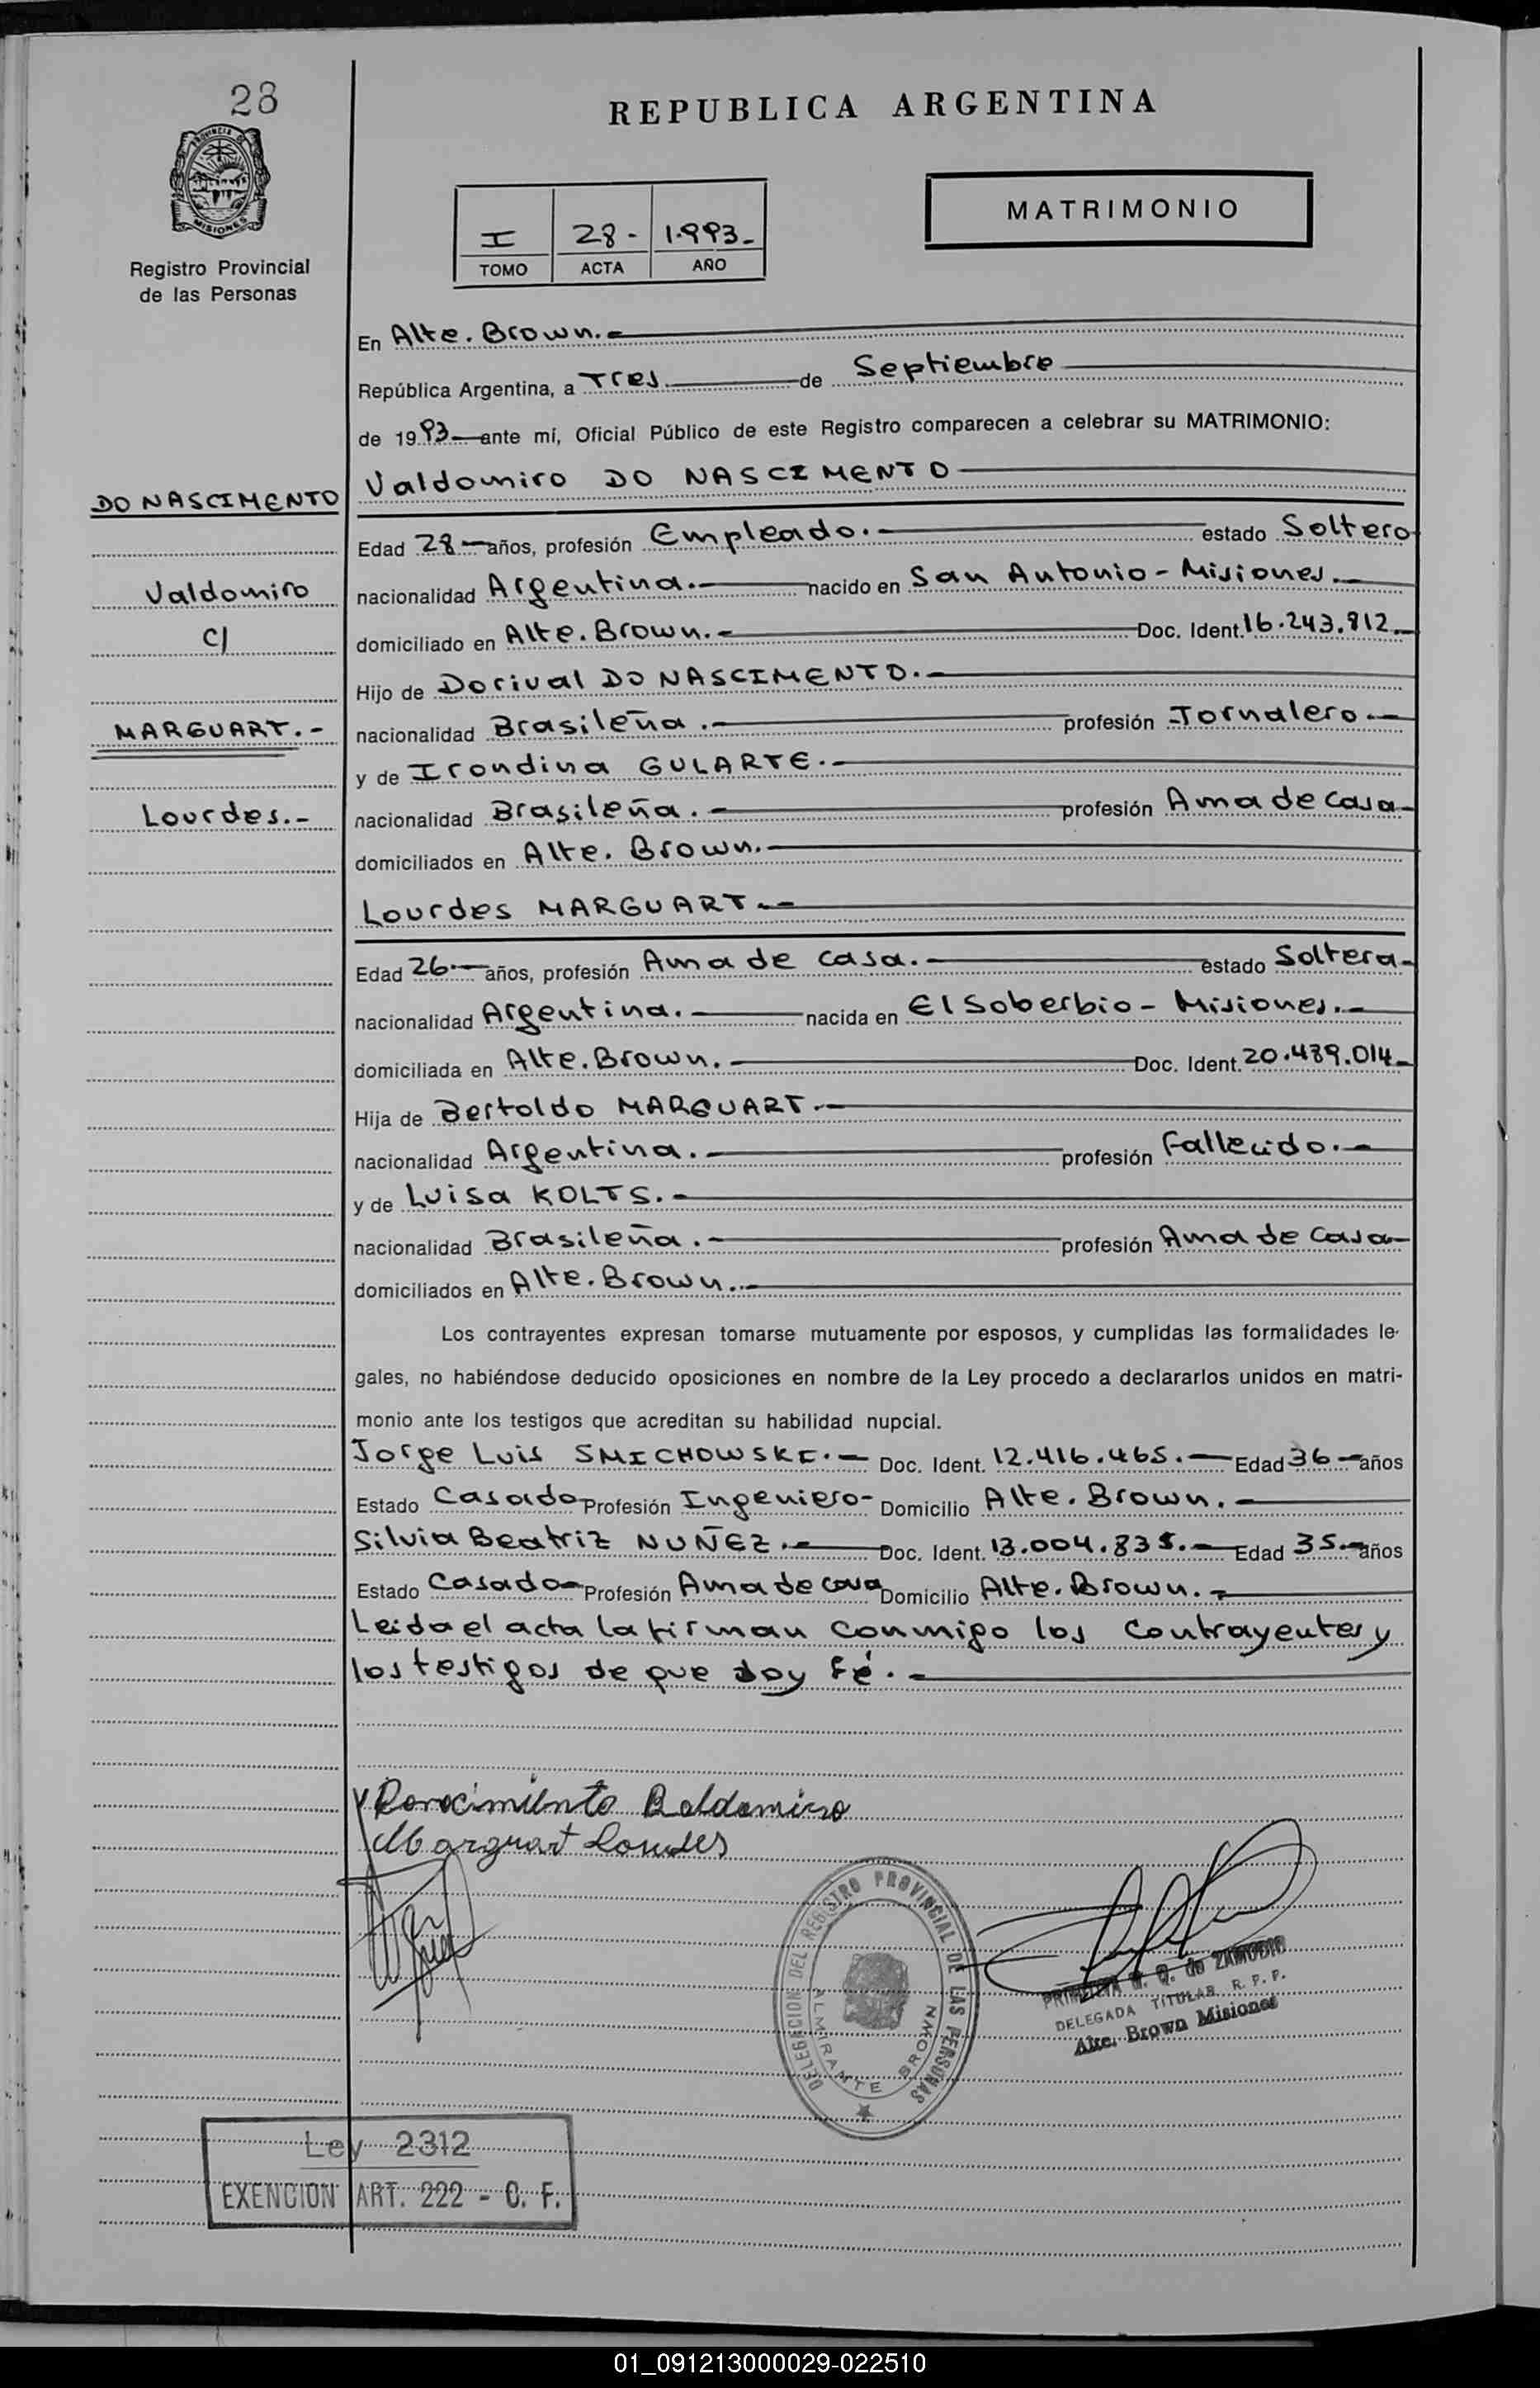 28
PROVINCIA DE
MISIONES
Registro Provincial
de las Personas
REPUBLICA ARGENTINA
I 28- 1.993-
TOMO ACTA AÑO
MATRIMONIO
En Alte. Brown.-
República Argentina, a Tres de Septiembre
de 1993 ante mí, Oficial Público de este Registro comparecen a celebrar su MATRIMONIO:
DO NASCIMENTO
Valdomiro
C/
MARGUART.-
Lourdes.-
Valdomiro DO NASCIMENTO
Edad 28 años, profesión Empleado.- estado Soltero
nacionalidad Argentina.- nacido en San Antonio - Misiones.-
domiciliado en Alte. Brown.- Doc. Ident. 16.243.812.-
Hijo de Dorival DO NASCIMENTO.-
nacionalidad Brasileña.- profesión Jornalero.-
y de Irondina GULARTE.-
nacionalidad Brasileña.- profesión Ama de casa-
domiciliados en Alte. Brown.-
Lourdes MARGUART.-
Edad 26.- años, profesión Ama de casa.- estado Soltera-
nacionalidad Argentina.- nacida en El Soberbio - Misiones.-
domiciliada en Alte. Brown.- Doc. Ident. 20.489.014-
Hija de Bertoldo MARGUART.-
nacionalidad Argentina.- profesión Fallecido.-
y de Luisa KOLTS.-
nacionalidad Brasileña.- profesión Ama de casa-
domiciliados en Alte. Brown.-
Los contrayentes expresan tomarse mutuamente por esposos, y cumplidas las formalidades le-
gales, no habiéndose deducido oposiciones en nombre de la Ley procedo a declararlos unidos en matri-
monio ante los testigos que acreditan su habilidad nupcial.
Jorge Luis SMICHOWSKI.- Doc. Ident. 12.416.465.- Edad 36 años
Estado Casado- Profesión Ingeniero- Domicilio Alte. Brown.-
Silvia Beatriz NUÑEZ.- Doc. Ident. 13.004.835.- Edad 35.- años
Estado Casado- Profesión Ama de casa Domicilio Alte. Brown.-
Leida el acta la firman conmigo los contrayentes y
los testigos de que doy fé.-
Marguart Lourdes
DELEGACION DEL REGISTRO PROVINCIAL DE LAS PERSONAS
ALMIRANTE BROWN
de ZAMUDIO
DELEGADA TITULAR R. P. P.
Alte. Brown Misiones
Ley 2312
EXENCION ART. 222 - C. F.
01_091213000029-022510